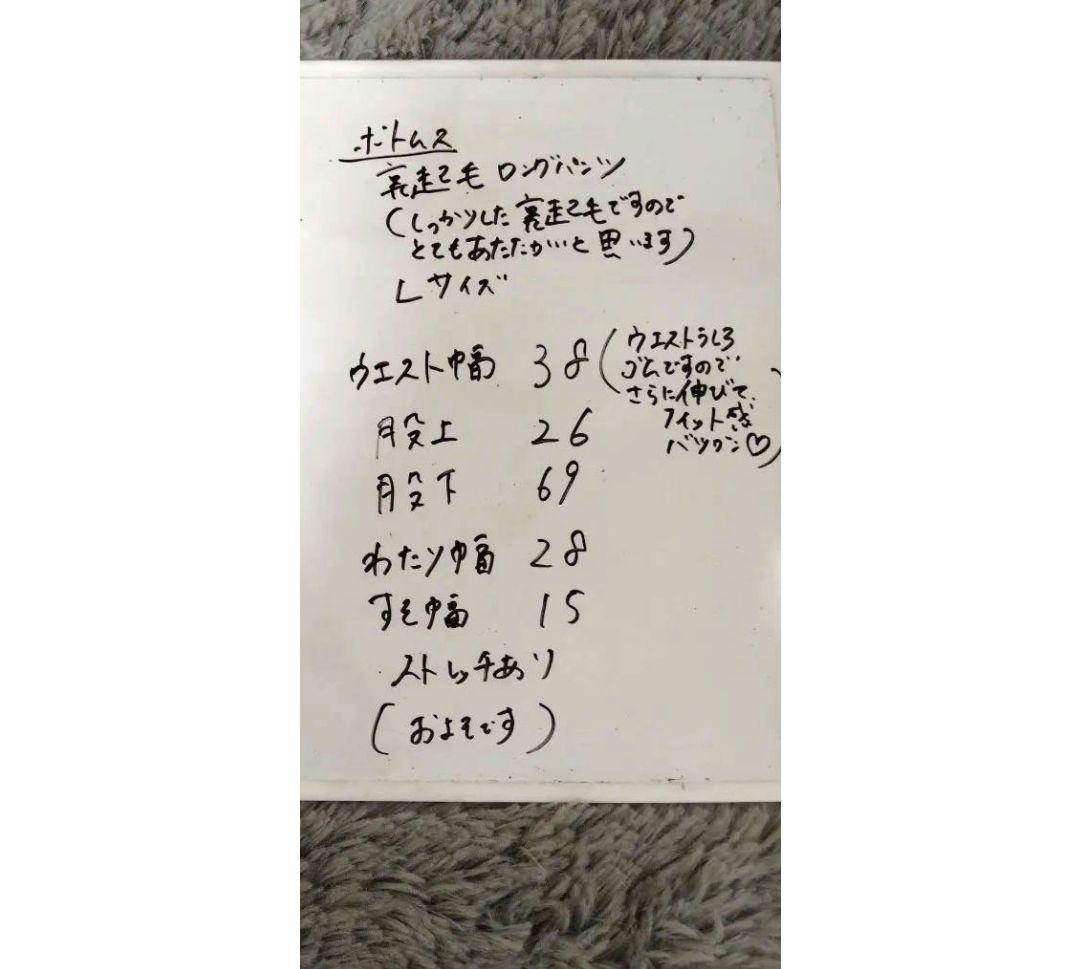 ボトムス
裏起毛 ロングパンツ
(しっかりした裏起毛ですので
とてもあたたかいと思います)
Lサイズ
ウエスト幅 38 (ウエストうしろ
ゴムですので
さらに伸びて、
フィット感
バツグン♡)
股上 26
股下 69
わたり幅 28
すそ幅 15
ストレッチあり
(およそです)